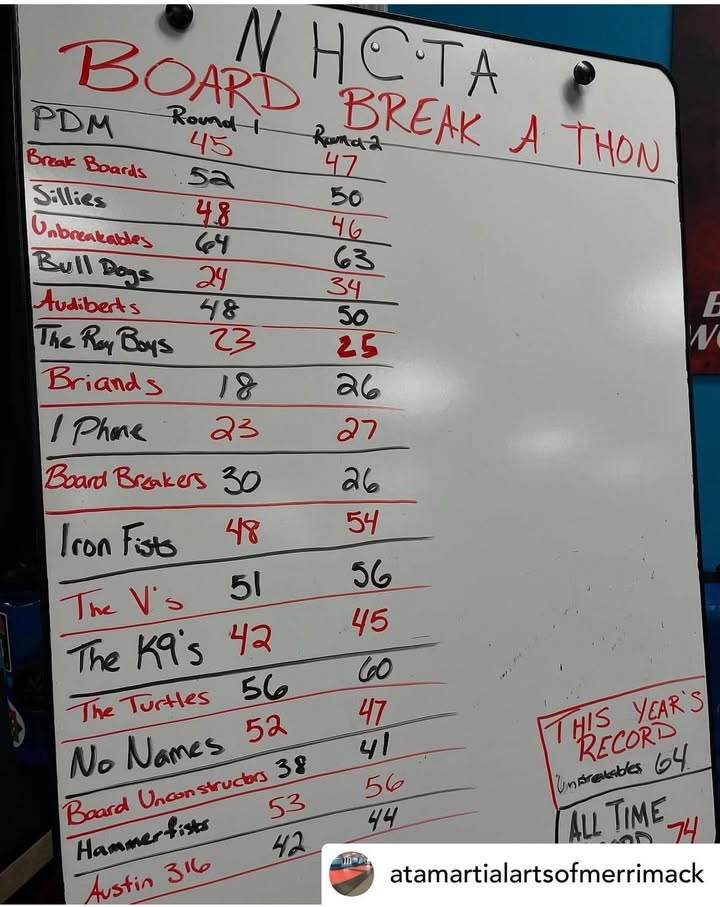 NHCTA
BOARD BREAK A THON
Round 1 Round 2
PDM 45 47
Break Boards 52 50
Sillies 48 46
Unbreakables 64 63
Bull Dogs 24 34
Audiberts 48 50
The Roy Boys 23 25
Briands 18 26
I Phone 23 27
Board Breakers 30 26
Iron Fists 48 54
The V's 51 56
The K9's 42 45
The Turtles 56 60
No Names 52 47
Board Unconstructors 38 41
Hammerfists 53 56
Austin 316 42 44
THIS YEAR'S
RECORD
Unbreakables 64
ALL TIME
74
atamartialartsofmerrimack